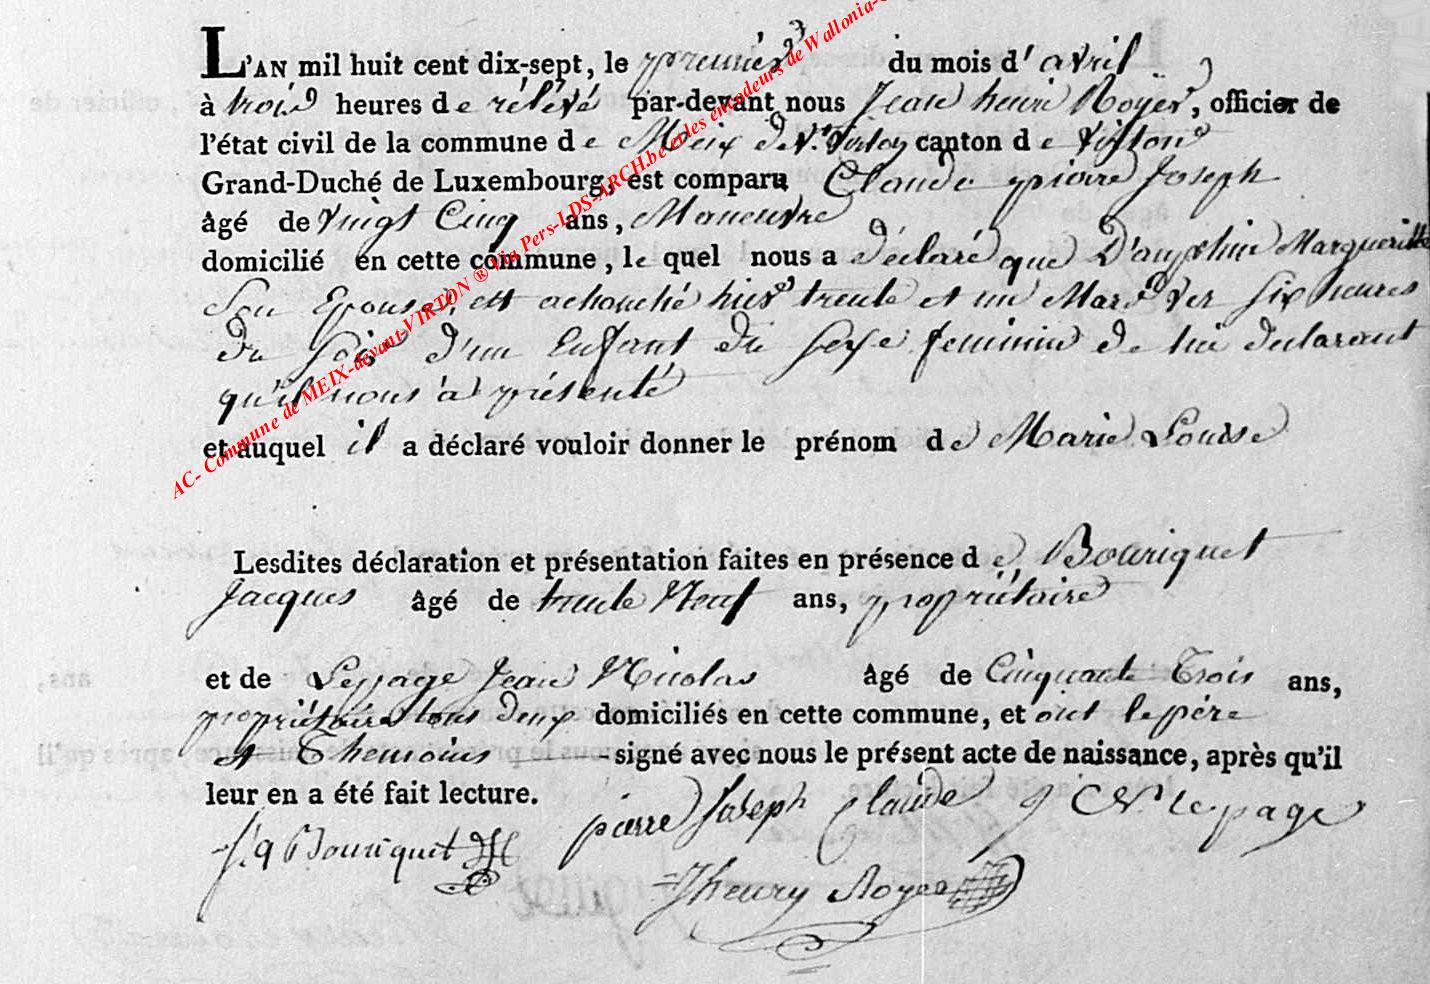 L'AN mil huit cent dix-sept, le premier du mois d'avril
à trois heures de rélévé par-devant nous Jean henri Royer, officier de
l'état civil de la commune de Meix dt. Virton canton de Virton
Grand-Duché de Luxembourg, est comparu Claude pierre Joseph
âgé de vingt Cinq ans, Maneuvre
domicilié en cette commune, le quel nous a déclaré que D'auphin Margueritte
Son Epouse, est achouché hier trente et un Mars ver Six heures
du Soir d'un Enfant du Sexe feminin de lui declarant
qu'il nous à présenté
et auquel il a déclaré vouloir donner le prénom de Marie Louise
Lesdites déclaration et présentation faites en présence de Bouriquet
Jacques âgé de trente Neuf ans, propriétaire
et de Lepage Jean Nicolas âgé de Cinquante Trois ans,
propriétaire tous deux domiciliés en cette commune, et ont le père
et Themoins signé avec nous le présent acte de naissance, après qu'il
leur en a été fait lecture.
pierre Joseph Claude J N lepage
J. q Bouriquet
Jhenry Royer
AC- Commune de MEIX-devant-VIRTON ® Via Pers-LDS-ARCH.be et les encodeurs de Wallonia-